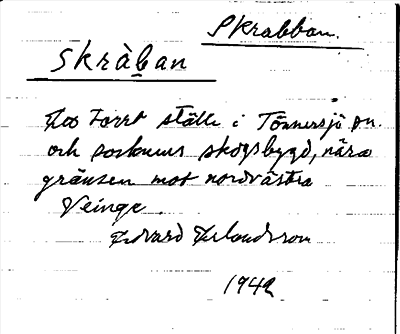 Skrabban.
Skràban
Torrt ställe i Tönnersjö sn.
och sockens skogsbygd, nära
gränsen mot nordvästra
Veinge.
Edvard Erlandsson
1942